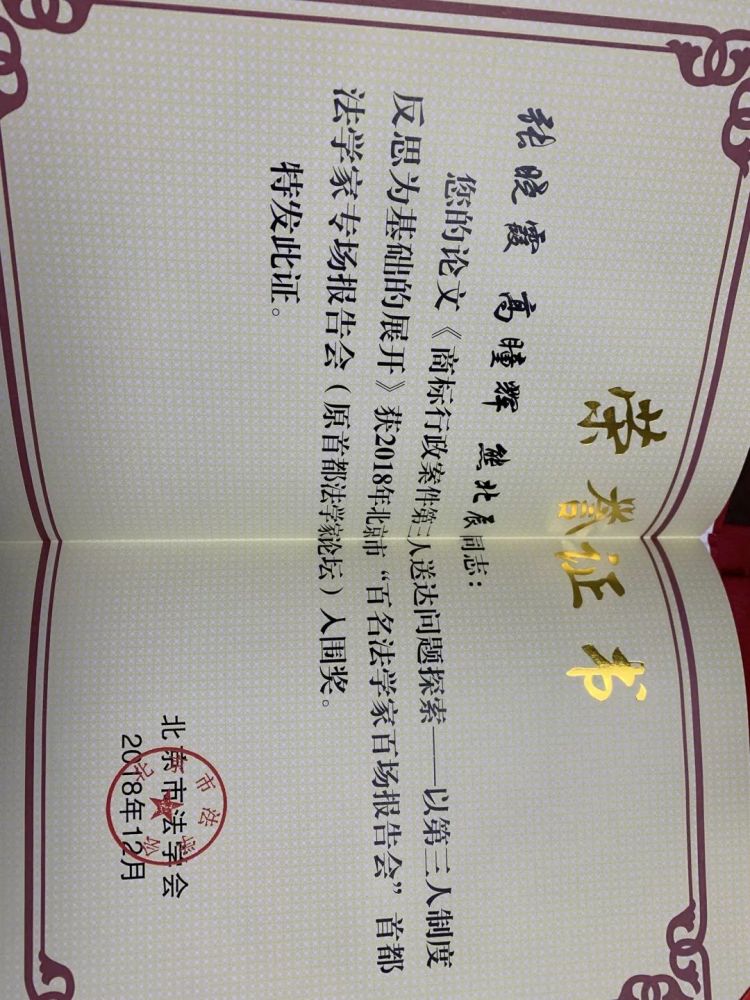 荣誉证书
张晓霞 高瞳辉 熊北辰同志：
您的论文《商标行政案件第三人送达问题探索——以第三人制度
反思为基础的展开》获2018年北京市“百名法学家百场报告会”首都
法学家专场报告会（原首都法学家论坛）入围奖。
特发此证。
北京市法学会
2018年12月